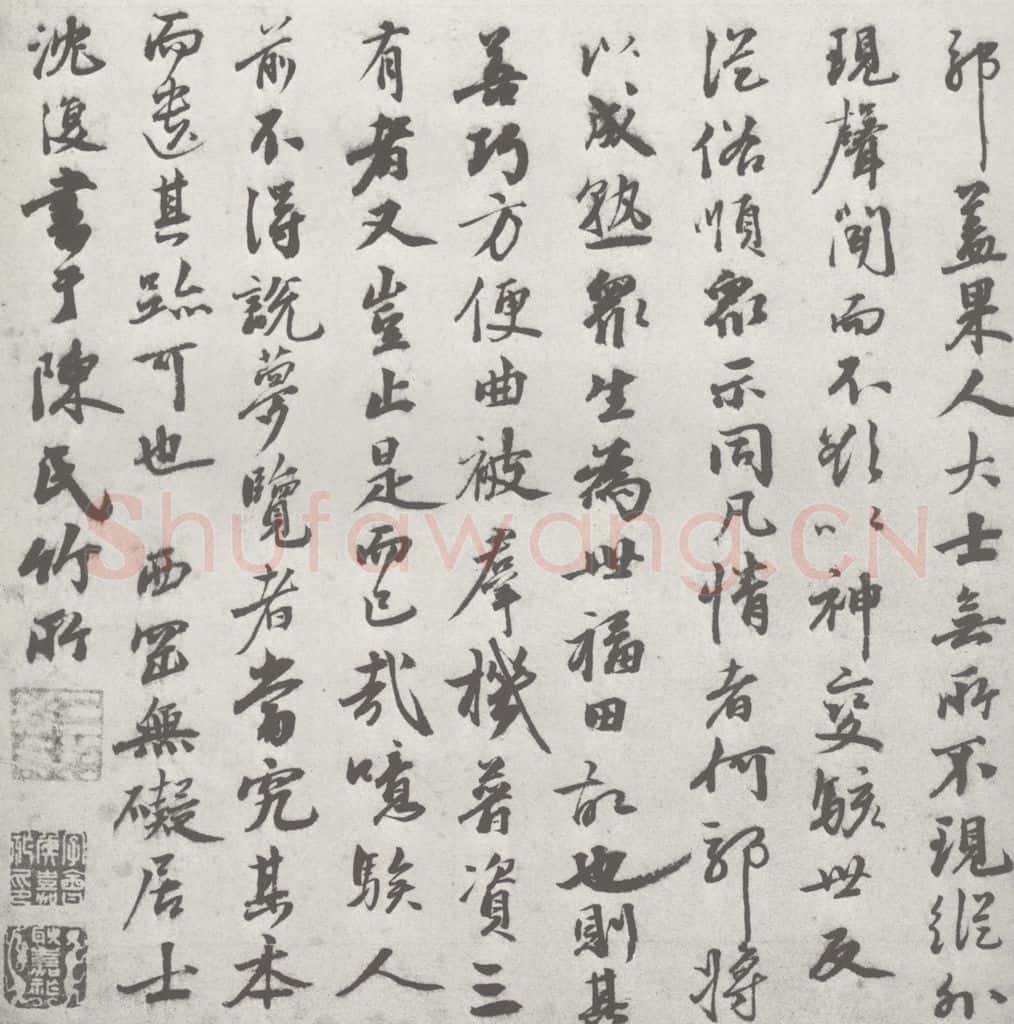 郭蓋果人大士無所不現縱外
現聲聞而不欲以神變駭世反
從俗順眾示同凡情者何郭將
以成熟眾生為世福田故也則其
善巧方便曲被群機普資三
有者又豈止是而已哉噫駭人
前不得說夢覽者當究其本
而遺其跡可也西罔無礙居士
沈復書于陳氏竹所
Shufawang.CN